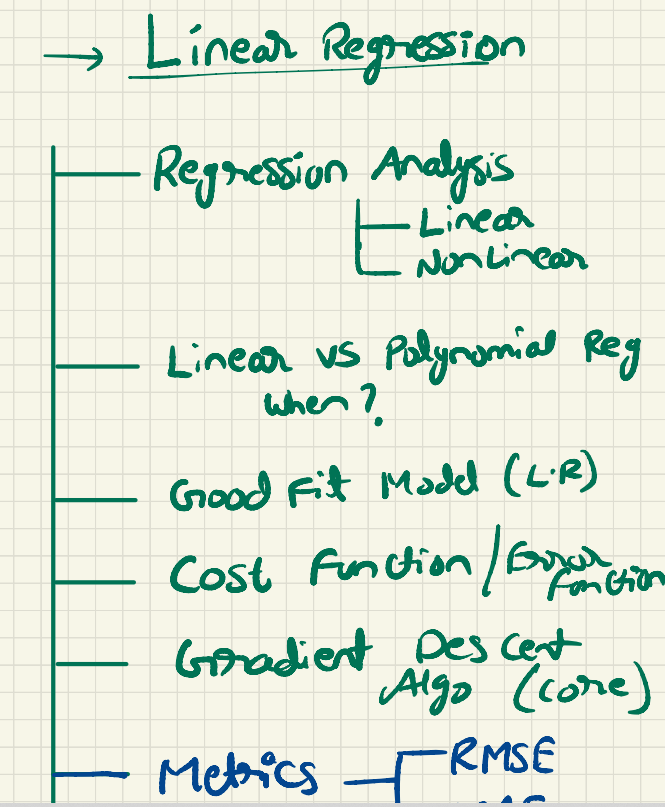 → Linear Regression
Regression Analysis
Linear
NonLinear
Linear vs Polynomial Reg
when?
Good Fit Model (L.R)
Cost Function / Error
function
Gradient Descent
Algo (core)
Metrics
RMSE